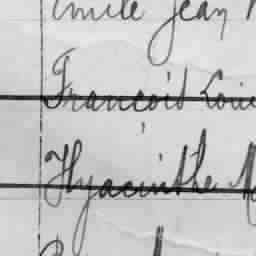 Emile Jean
François Louis
Hyacinthe